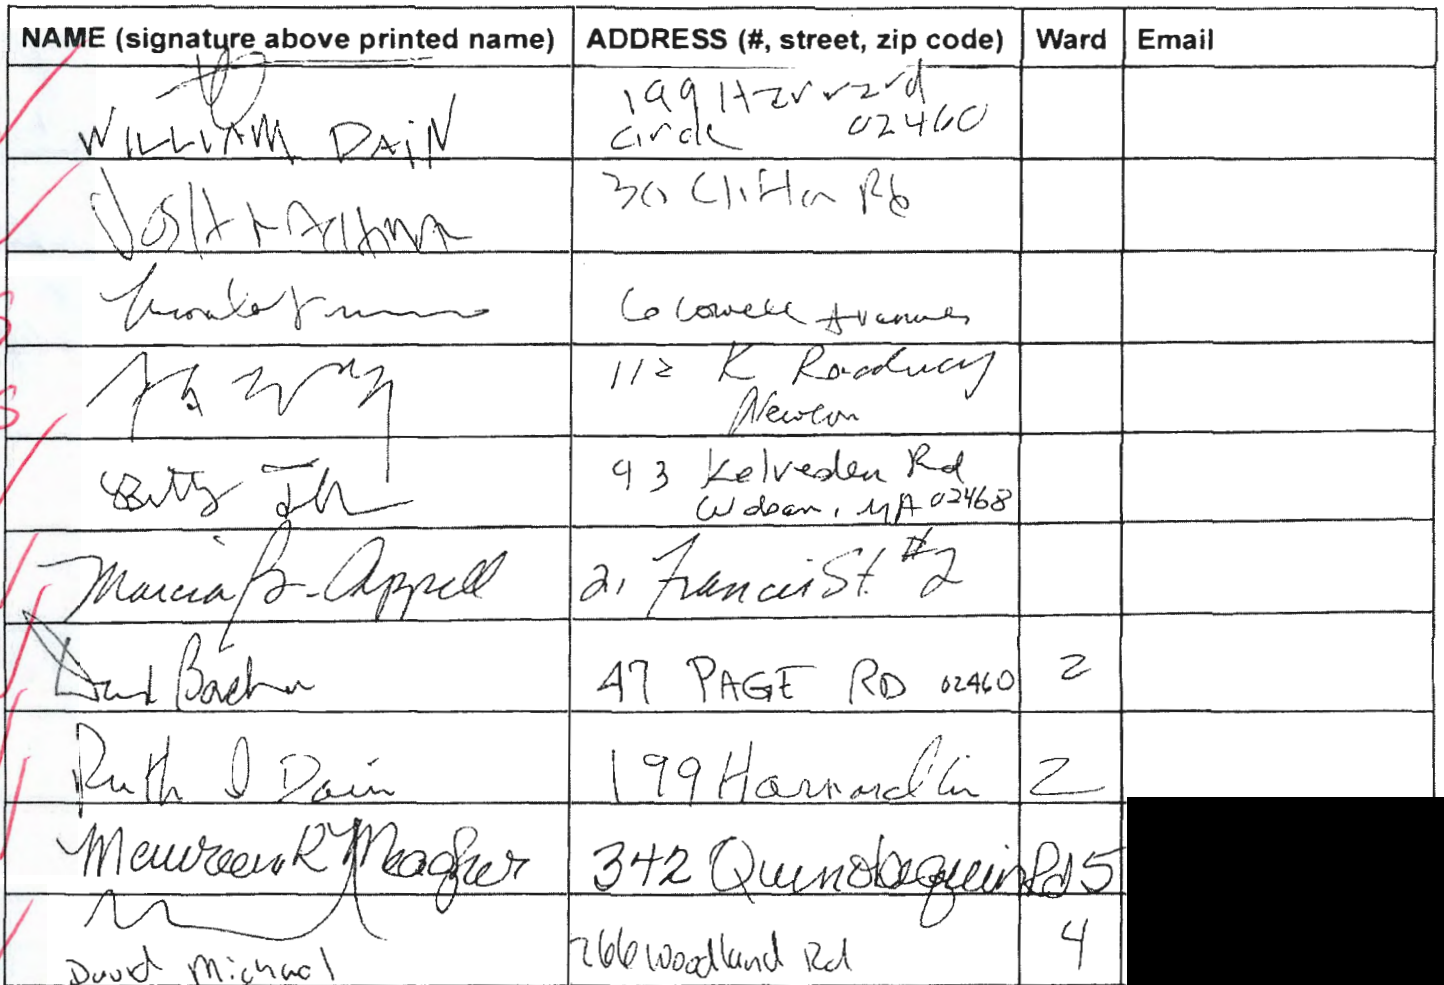 NAME (signature above printed name) ADDRESS (#, street, zip code) Ward Email
WILLIAM DAIN 199 Harvard
Circle 02460
JOSH 30 Clifton Rd
S 6 Lowell Avenue
112 Roadway
S Newton
Betty 93 Kelveden Rd
Waban, MA 02468
Marcia B. Appell 21 Francis St. #2
47 PAGE RD 02460 2
Ruth I Dain 199 Harvard Cir 2
Maureen R Meagher 342 Quinobequin Rd 5
David Michael 266 Woodland Rd 4